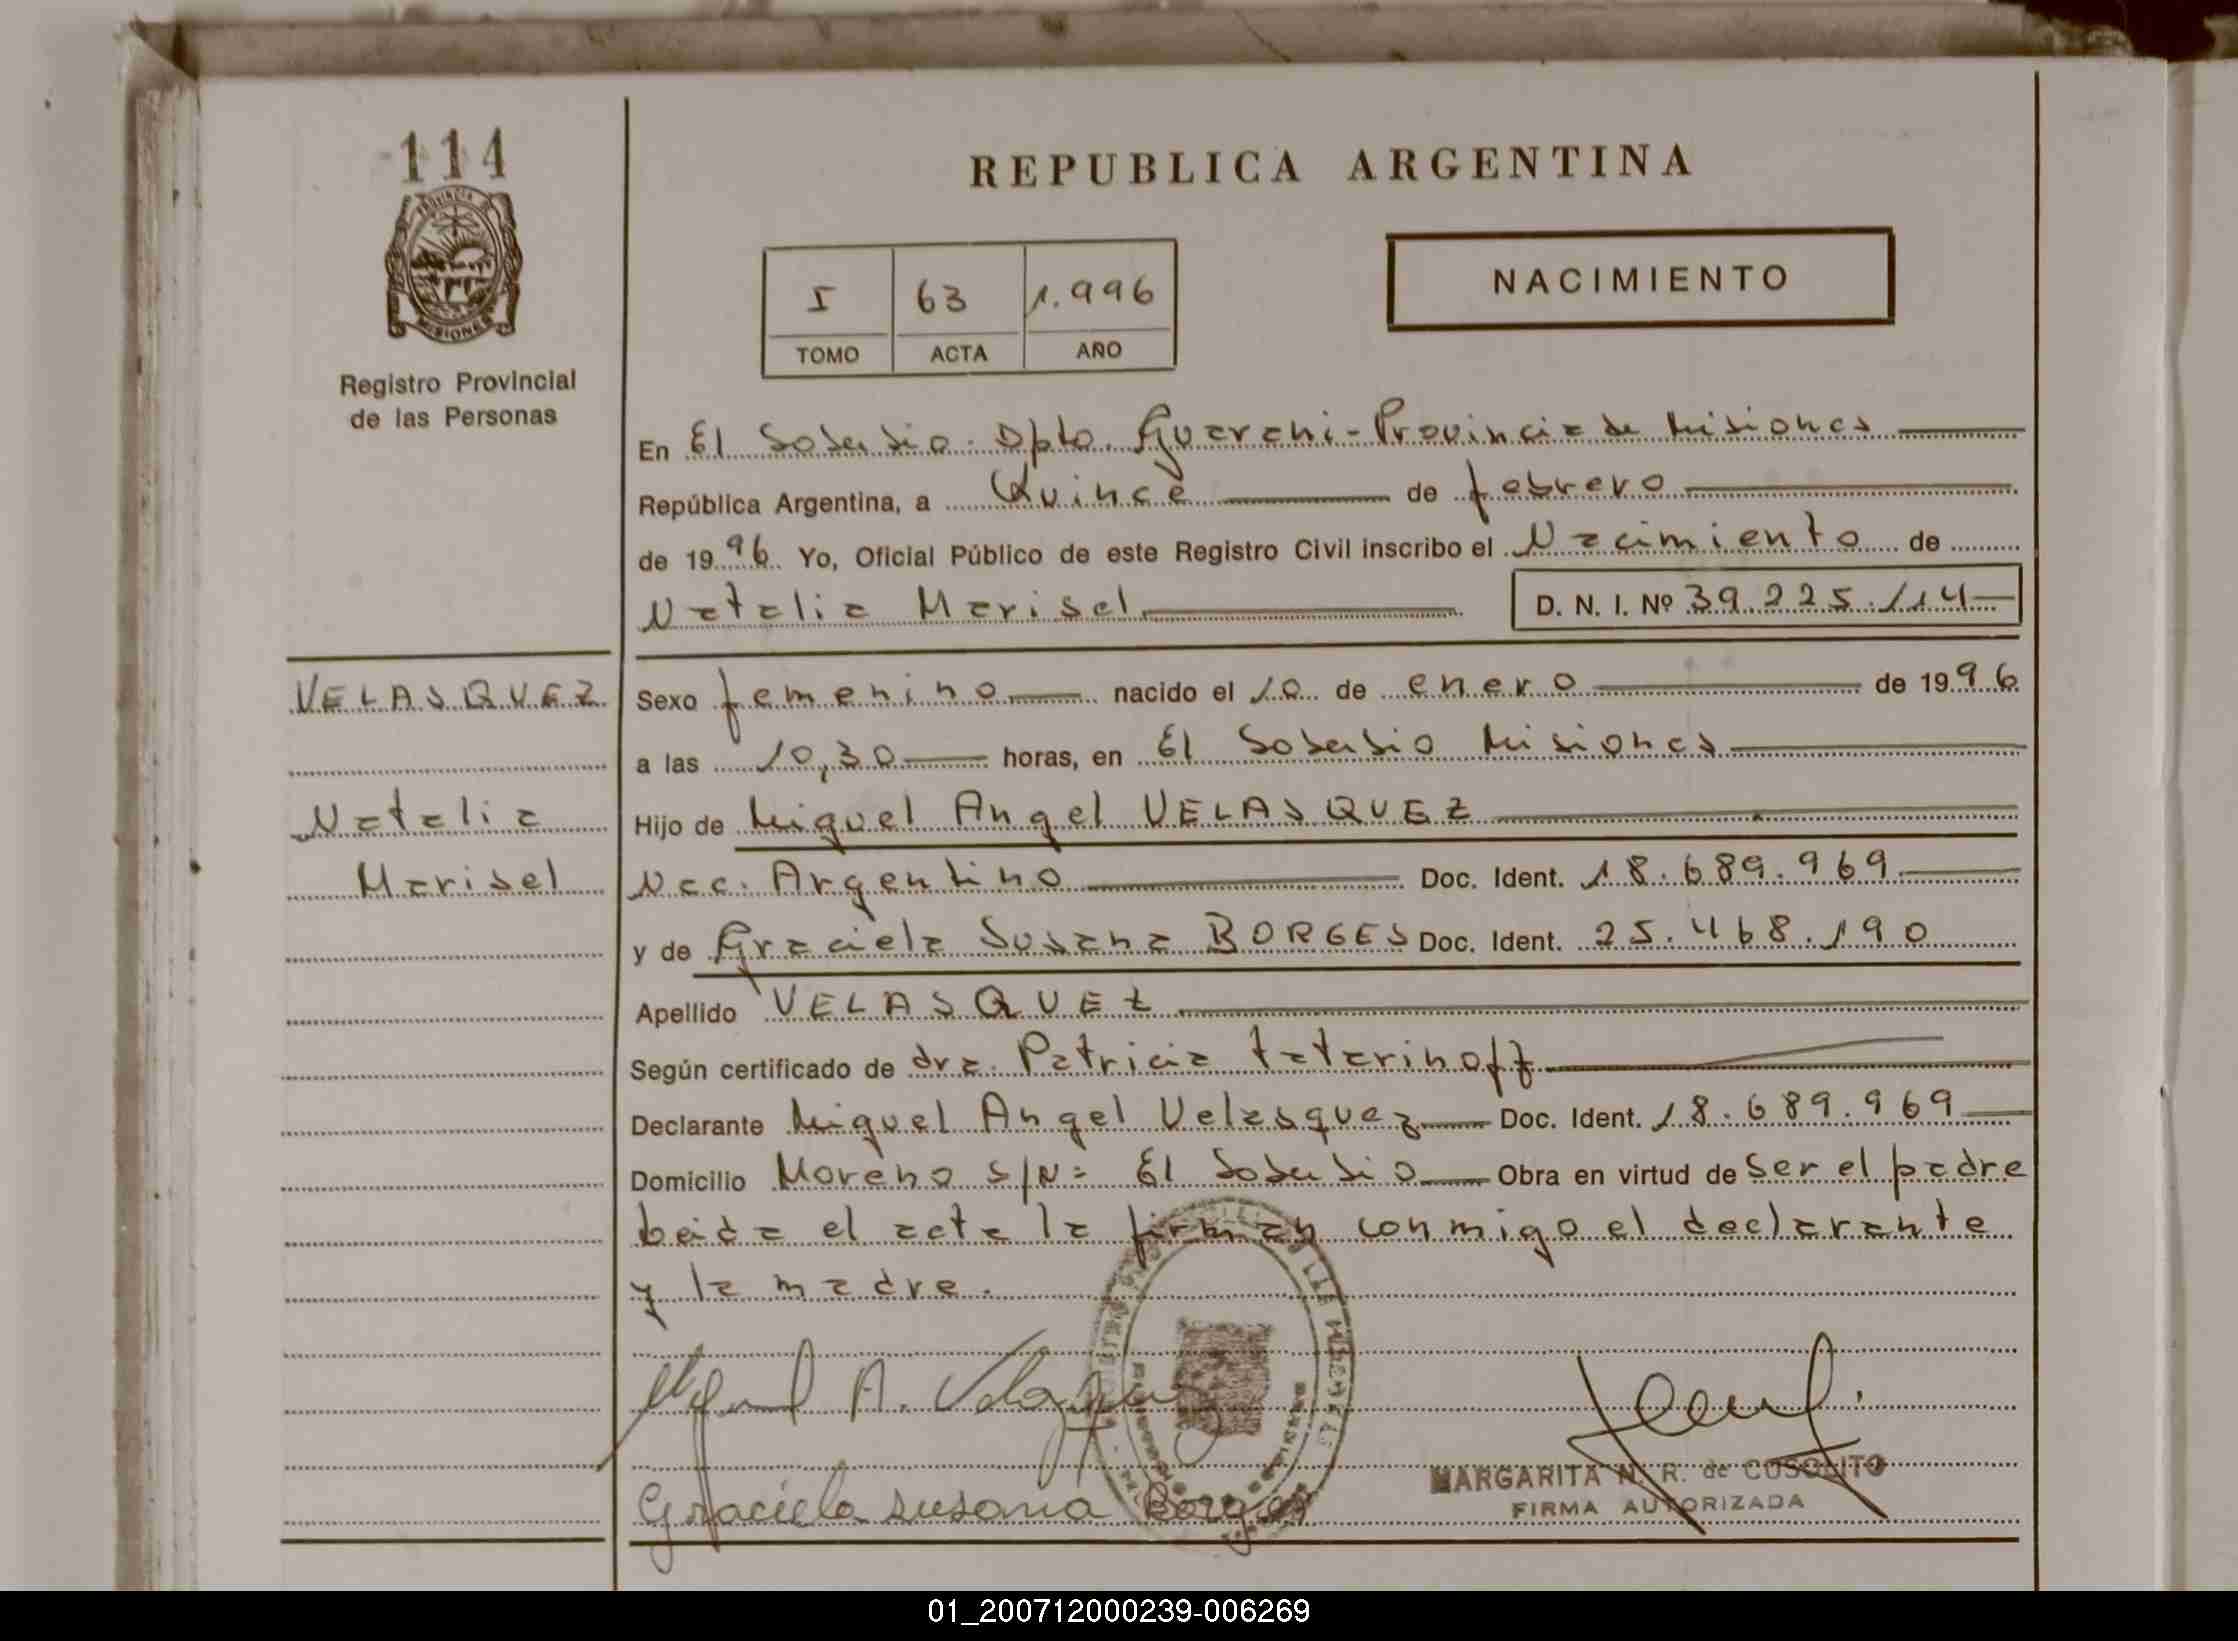 114
PROVINCIA DE
MISIONES
Registro Provincial
de las Personas
REPUBLICA ARGENTINA
I 63 1.996
TOMO ACTA AÑO
NACIMIENTO
En El Soberbio. Dpto. Guarani - Provincia de Misiones
República Argentina, a Quince de febrero
de 1996 Yo, Oficial Público de este Registro Civil inscribo el Nacimiento de
Natalia Marisel D. N. I. Nº 39.225.114
VELASQUEZ
Natalia
Marisel
Sexo femenino nacido el 10 de enero de 1996
a las 10,30 horas, en El Soberbio Misiones
Hijo de Miguel Angel VELASQUEZ
Nac. Argentino Doc. Ident. 18.689.969
y de Graciela Susana BORGES Doc. Ident. 25.468.190
Apellido VELASQUEZ
Según certificado de dra. Patricia Tatarinoff
Declarante Miguel Angel Velasquez Doc. Ident. 18.689.969
Domicilio Moreno S/N= El Soberbio Obra en virtud de ser el padre
Leida el acta la firman conmigo el declarante
y la madre.
Miguel A. Velazquez
Graciela Susana Borges
MARGARITA N. R. de COSOLITO
FIRMA AUTORIZADA
01_200712000239-006269